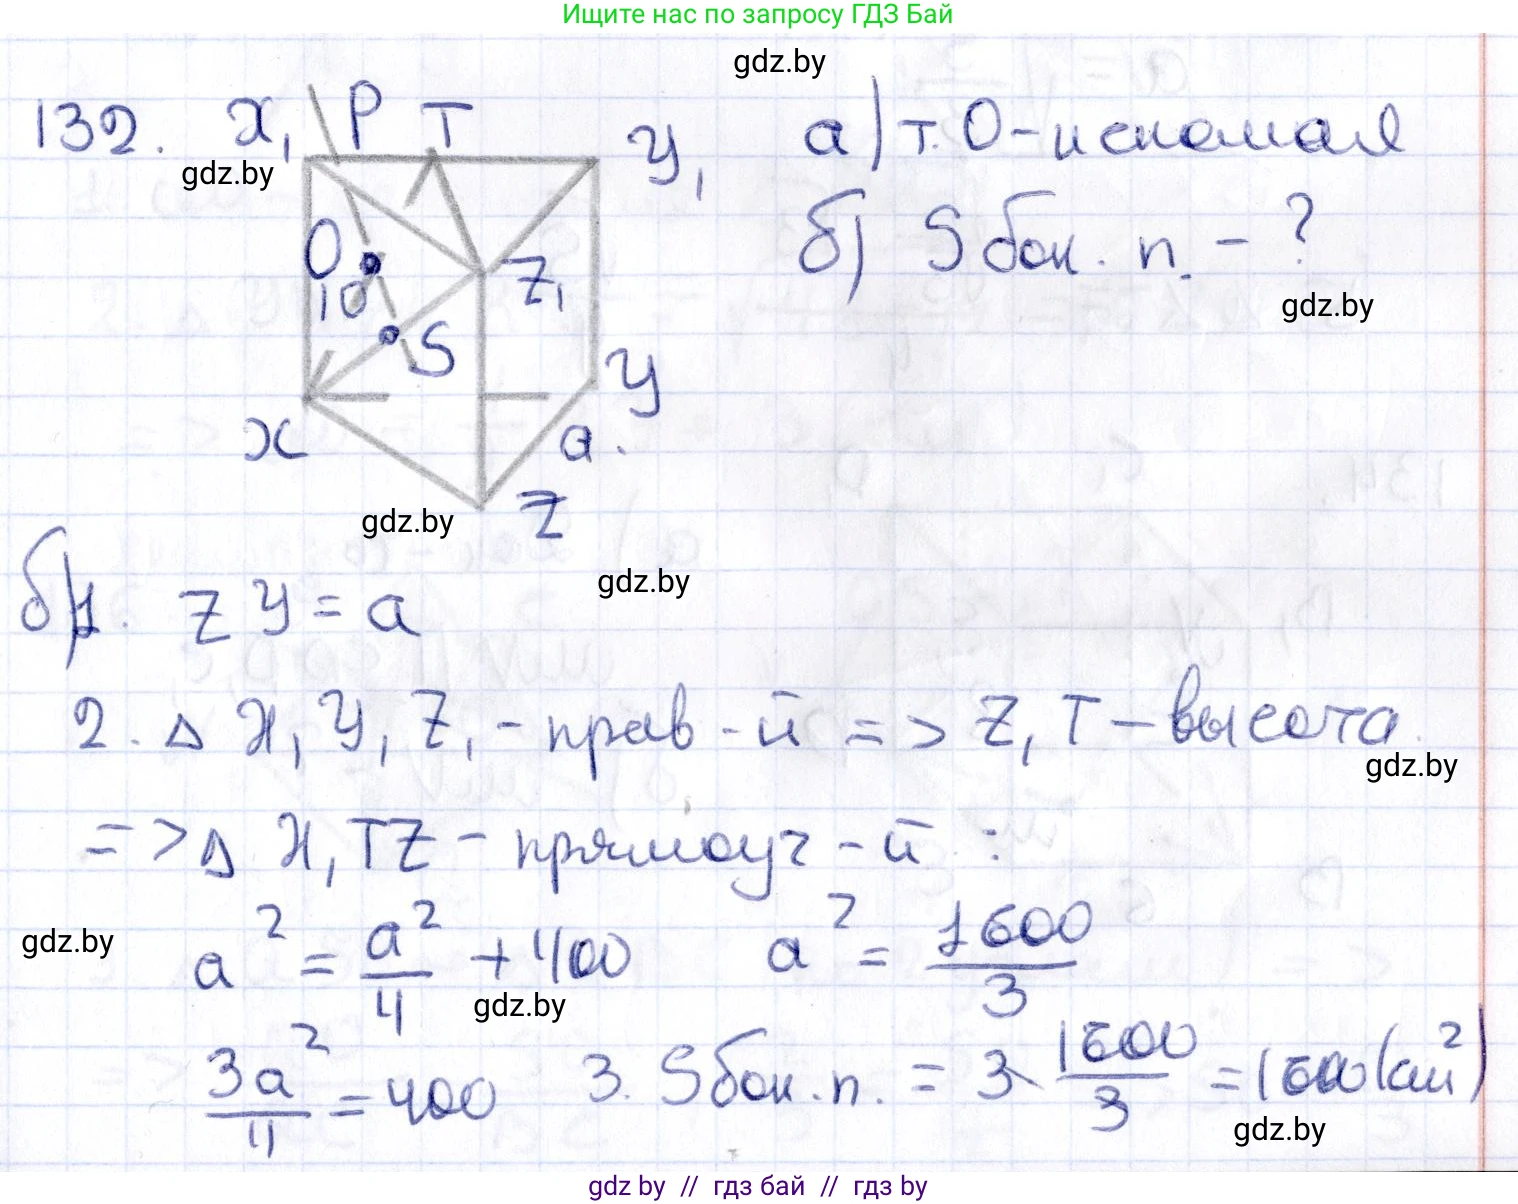 Ищите нас по запросу ГДЗ Бай
gdz.by
132. X₁ P T Y₁ а) т. O - искомая
gdz.by
б) S бок. п. - ?
O
10
Z₁
gdz.by
S
Y
X
a.
gdz.by
Z
gdz.by
б) 1. ZY = a
2. Δ X₁Y₁Z₁ - прав-й => Z₁T - высота
gdz.by
=> Δ X₁TZ - прямоуг-й :
gdz.by
a² = a²/4 + 400 a² = 1600/3
gdz.by
3a²/4 = 400 3. S бок. п. = 3 · 1600/3 = 1600 (см²)
gdz.by
gdz by // гдз бай // гдз by